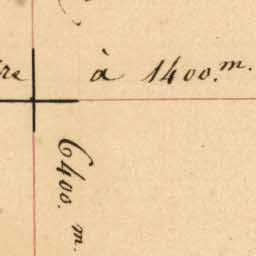 à 1400.m.
6400. m.